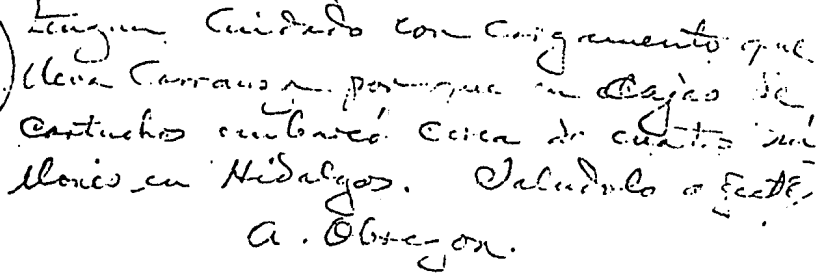 Tengan Cuidado con Cargamento que
lleva Carranza porque en Cajas de
Cartuchos embarcó cerca de cuatro mi
llones en Hidalgos. Saludolo afecte.
A. Obregon.